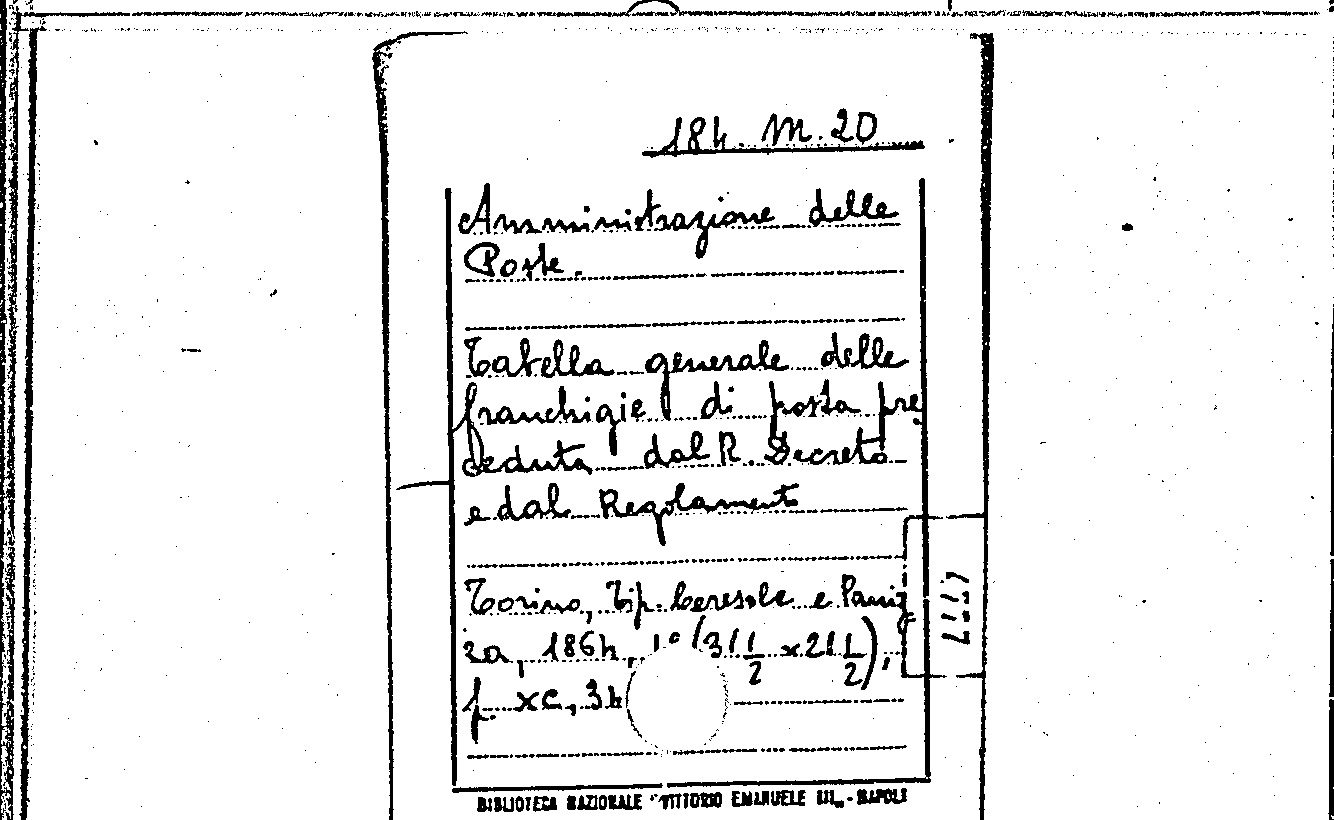 184. M. 20
Amministrazione delle
Poste.
Tabella generale delle
franchigie di posta pre
ceduta dal R. Decreto
e dal Regolamento
Torino, Tip. Ceresole e Paniz
za, 1864, 1° (31 1/2 x 21 1/2),
p. xc, 34
BIBLIOTECA NAZIONALE "VITTORIO EMANUELE III" - NAPOLI